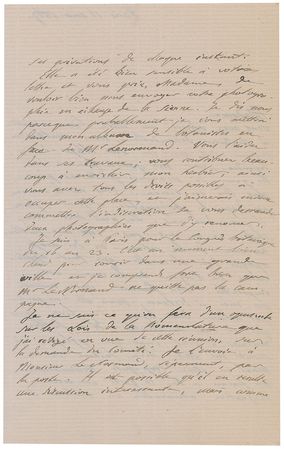 ses privations de chaque instant.
Elle a été bien sensible à votre
lettre et vous prie, Madame, de
vouloir bien nous envoyer votre photogra-
phie en échange de la sienne. Je dis nous
parceque probablement je vous mettrai
dans mon album de botanistes en
face de Mr Lenormand. Vous l'aidez
dans ses travaux, vous contribuez beau-
coup à enrichir mon herbier, ainsi
vous avez tous les droits possibles à
occuper cette place, et j'aimerais
commettre l'indiscrétion de vous demander
deux photographies que d'y renoncer.
Je suis à Paris pour le congrès botanique
du 16 au 23. C'est un moment bien
chaud pour courir dans une grande
ville et je comprends fort bien que
Mr Le Normand ne quitte pas la cam-
pagne.
Je ne sais ce qu'on fera d'un
sur les Lois de la Nomenclature que
j'ai rédigé en vue de cette réunion, sur
la demande du Comité. Je l'envoie à
Monsieur Le Normand, séparément, par
la poste. Il est possible qu'il en résulte
une discussion intéressante, mais comme